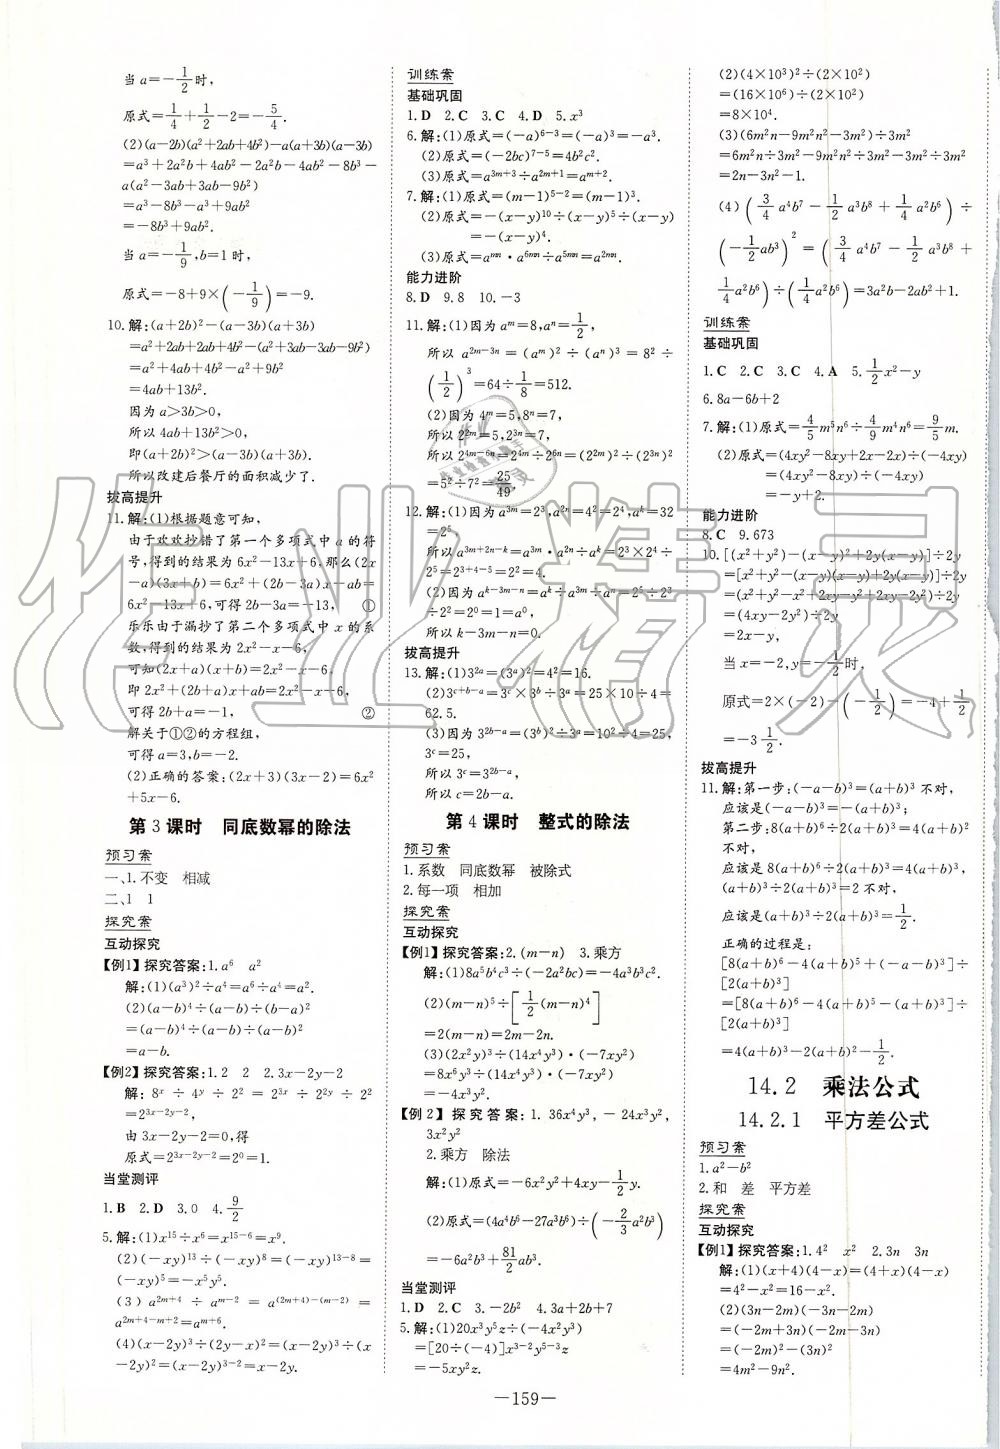 当a=-1/2时,
原式=1/4+1/2-2=-5/4.
(2)(a-2b)(a²+2ab+4b²)-a(a+3b)(a-3b)
=a³+2a²b+4ab²-2a²b-4ab²-8b³-
a(a²-3ab+3ab-9b²)
=a³-8b³-a³+9ab²
=-8b³+9ab².
当a=-1/9,b=1时,
原式=-8+9×(-1/9)=-9.
10.解:(a+2b)²-(a-3b)(a+3b)
=a²+2ab+2ab+4b²-(a²+3ab-3ab-9b²)
=a²+4ab+4b²-a²+9b²
=4ab+13b².
因为a>3b>0,
所以4ab+13b²>0,
即(a+2b)²>(a-3b)(a+3b).
所以改建后餐厅的面积减少了.
拔高提升
11.解:(1)根据题意可知,
由于欢欢抄错了第一个多项式中a的符
号,得到的结果为6x²-13x+6,那么(2x
-a)(3x+b)=6x²+(2b-3a)x-ab=
6x²-13x+6,可得2b-3a=-13, ①
乐乐由于漏抄了第二个多项式中x的系
数,得到的结果为2x²-x-6,
可知(2x+a)(x+b)=2x²-x-6,
即2x²+(2b+a)x+ab=2x²-x-6,
可得2b+a=-1, ②
解关于①②的方程组,
可得a=3,b=-2.
(2)正确的答案:(2x+3)(3x-2)=6x²
+5x-6.
第3课时 同底数幂的除法
预习案
一、1.不变 相减
二、1 1
探究案
互动探究
【例1】探究答案:1.a⁶ a²
解:(1)(a³)²÷a⁴=a⁶÷a⁴=a².
(2)(a-b)⁴÷(a-b)÷(b-a)²
=(a-b)⁴÷(a-b)÷(a-b)²
=a-b.
【例2】探究答案:1.2 2 2.3x-2y-2
解:8ˣ÷4ʸ÷2²=2³ˣ÷2²ʸ÷2²
=2³ˣ⁻²ʸ⁻².
由3x-2y-2=0,得
原式=2³ˣ⁻²ʸ⁻²=2⁰=1.
当堂测评
1.B 2.D 3.0 4.9/2
5.解:(1)x¹⁵÷x⁶=x¹⁵⁻⁶=x⁹.
(2)(-xy)¹³÷(-xy)⁸=(-xy)¹³⁻⁸=
(-xy)⁵=-x⁵y⁵.
(3)a²ᵐ⁺⁴÷aᵐ⁻²=a⁽²ᵐ⁺⁴⁾⁻⁽ᵐ⁻²⁾=
a²ᵐ⁺⁴⁻ᵐ⁺²=aᵐ⁺⁶.
(4)(x-2y)³÷(2y-x)²=(x-2y)³÷(x
-2y)²=(x-2y)³⁻²=x-2y.
训练案
基础巩固
1.D 2.C 3.C 4.D 5.x³
6.解:(1)原式=(-a)⁶⁻³=(-a)³=-a³.
(2)原式=(-2bc)⁷⁻⁵=4b²c².
(3)原式=a³ᵐ⁺³÷a²ᵐ⁺¹=aᵐ⁺².
7.解:(1)原式=(m-1)⁵⁻²=(m-1)³.
(2)原式=-(x-y)¹⁰÷(x-y)⁵÷(x-y)
=-(x-y)⁴.
(3)原式=aᵐⁿ·a⁶ᵐⁿ÷a⁵ᵐⁿ=a²ᵐⁿ.
能力进阶
8.D 9.8 10.-3
11.解:(1)因为aᵐ=8,aⁿ=1/2,
所以a²ᵐ⁻³ⁿ=(aᵐ)²÷(aⁿ)³=8²÷
(1/2)³=64÷1/8=512.
(2)因为4ᵐ=5,8ⁿ=7,
所以2²ᵐ=5,2³ⁿ=7,
所以2⁴ᵐ⁻⁶ⁿ=(2²ᵐ)²÷(2³ⁿ)²
=5²÷7²=25/49.
12.解:(1)因为a³ᵐ=2³,a²ⁿ=4²=2⁴,aᵏ=32
=2⁵,
所以a³ᵐ⁺²ⁿ⁻ᵏ=a³ᵐ·a²ⁿ÷aᵏ=2³×2⁴÷
2⁵=2³⁺⁴⁻⁵=2²=4.
(2)因为aᵏ⁻³ᵐ⁻ⁿ=aᵏ÷a³ᵐ÷aⁿ=2⁵÷2³
÷2²=2⁰=1=a⁰,
所以k-3m-n=0.
拔高提升
13.解:(1)3²ᵃ=(3ᵃ)²=4²=16.
(2)3ᶜ⁺ᵇ⁻ᵃ=3ᶜ×3ᵇ÷3ᵃ=25×10÷4=
62.5.
(3)因为3²ᵇ⁻ᵃ=(3ᵇ)²÷3ᵃ=10²÷4=25,
3ᶜ=25,
所以3ᶜ=3²ᵇ⁻ᵃ,
所以c=2b-a.
第4课时 整式的除法
预习案
1.系数 同底数幂 被除式
2.每一项 相加
探究案
互动探究
【例1】探究答案:2.(m-n) 3.乘方
解:(1)8a⁵b⁴c³÷(-2a²bc)=-4a³b³c².
(2)(m-n)⁵÷[1/2(m-n)⁴]
=2(m-n)=2m-2n.
(3)(2x²y)³÷(14x⁴y³)·(-7xy²)
=8x⁶y³÷(14x⁴y³)·(-7xy²)
=-4x³y².
【例2】探究答案:1.36x⁴y³,-24x³y²,
3x²y²
2.乘方 除法
解:(1)原式=-6x²y²+4xy-1/2y.
(2)原式=(4a⁴b⁶-27a³b⁶)÷(-2/3a²b³)
=-6a²b³+81/2ab³.
当堂测评
1.D 2.C 3.-2b² 4.3a+2b+7
5.解:(1)20x³y⁵z÷(-4x²y³)
=[20÷(-4)]x³⁻²y⁵⁻³z
=-5xy²z.
(2)(4×10³)²÷(2×10²)
=(16×10⁶)÷(2×10²)
=8×10⁴.
(3)(6m²n-9m²n²-3m²)÷3m²
=6m²n÷3m²-9m²n²÷3m²-3m²÷3m²
=2n-3n²-1.
(4)(3/4a⁴b⁷-1/2a³b⁸+1/4a²b⁶)÷
(-1/2ab³)²=(3/4a⁴b⁷-1/2a³b⁸+
1/4a²b⁶)÷(1/4a²b⁶)=3a²b-2ab²+1.
训练案
基础巩固
1.C 2.C 3.C 4.A 5.1/2x²-y
6.8a-6b+2
7.解:(1)原式=4/5m⁵n⁶÷4/9m⁴n⁶=9/5m.
(2)原式=(4xy²-8xy+2x-2x)÷(-4xy)
=(4xy²-8xy)÷(-4xy)
=-y+2.
能力进阶
8.C 9.673
10.[(x²+y²)-(x-y)²+2y(x-y)]÷2y
=[x²+y²-(x-y)(x-y)+2y(x-y)]÷2y
=(x²+y²-x²+2xy-y²+2xy-2y²)÷2y
=(4xy-2y²)÷2y
=2x-y,
当x=-2,y=-1/2时,
原式=2×(-2)-(-1/2)=-4+1/2
=-3 1/2.
拔高提升
11.解:第一步:(-a-b)³=(a+b)³不对,
应该是(-a-b)³=-(a+b)³;
第二步:8(a+b)⁶÷2(a+b)³=4(a+b)²
不对,
应该是8(a+b)⁶÷2(a+b)³=4(a+b)³.
(a+b)³÷2(a+b)³=2不对,
应该是(a+b)³÷2(a+b)³=1/2.
正确的过程是:
[8(a+b)⁶-4(a+b)⁵+(-a-b)³]÷
[2(a+b)³]
=[8(a+b)⁶-4(a+b)⁵-(a+b)³]÷
[2(a+b)³]
=4(a+b)³-2(a+b)²-1/2.
14.2 乘法公式
14.2.1 平方差公式
预习案
1.a²-b²
2.和 差 平方差
探究案
互动探究
【例1】探究答案:1.4² x² 2.3n 3n
解:(1)(x+4)(4-x)=(4+x)(4-x)
=4²-x²=16-x².
(2)(3n-2m)(-3n-2m)
=(-2m+3n)(-2m-3n)
=(-2m)²-(3n)²
=4m²-9n².
—159—
作业精灵